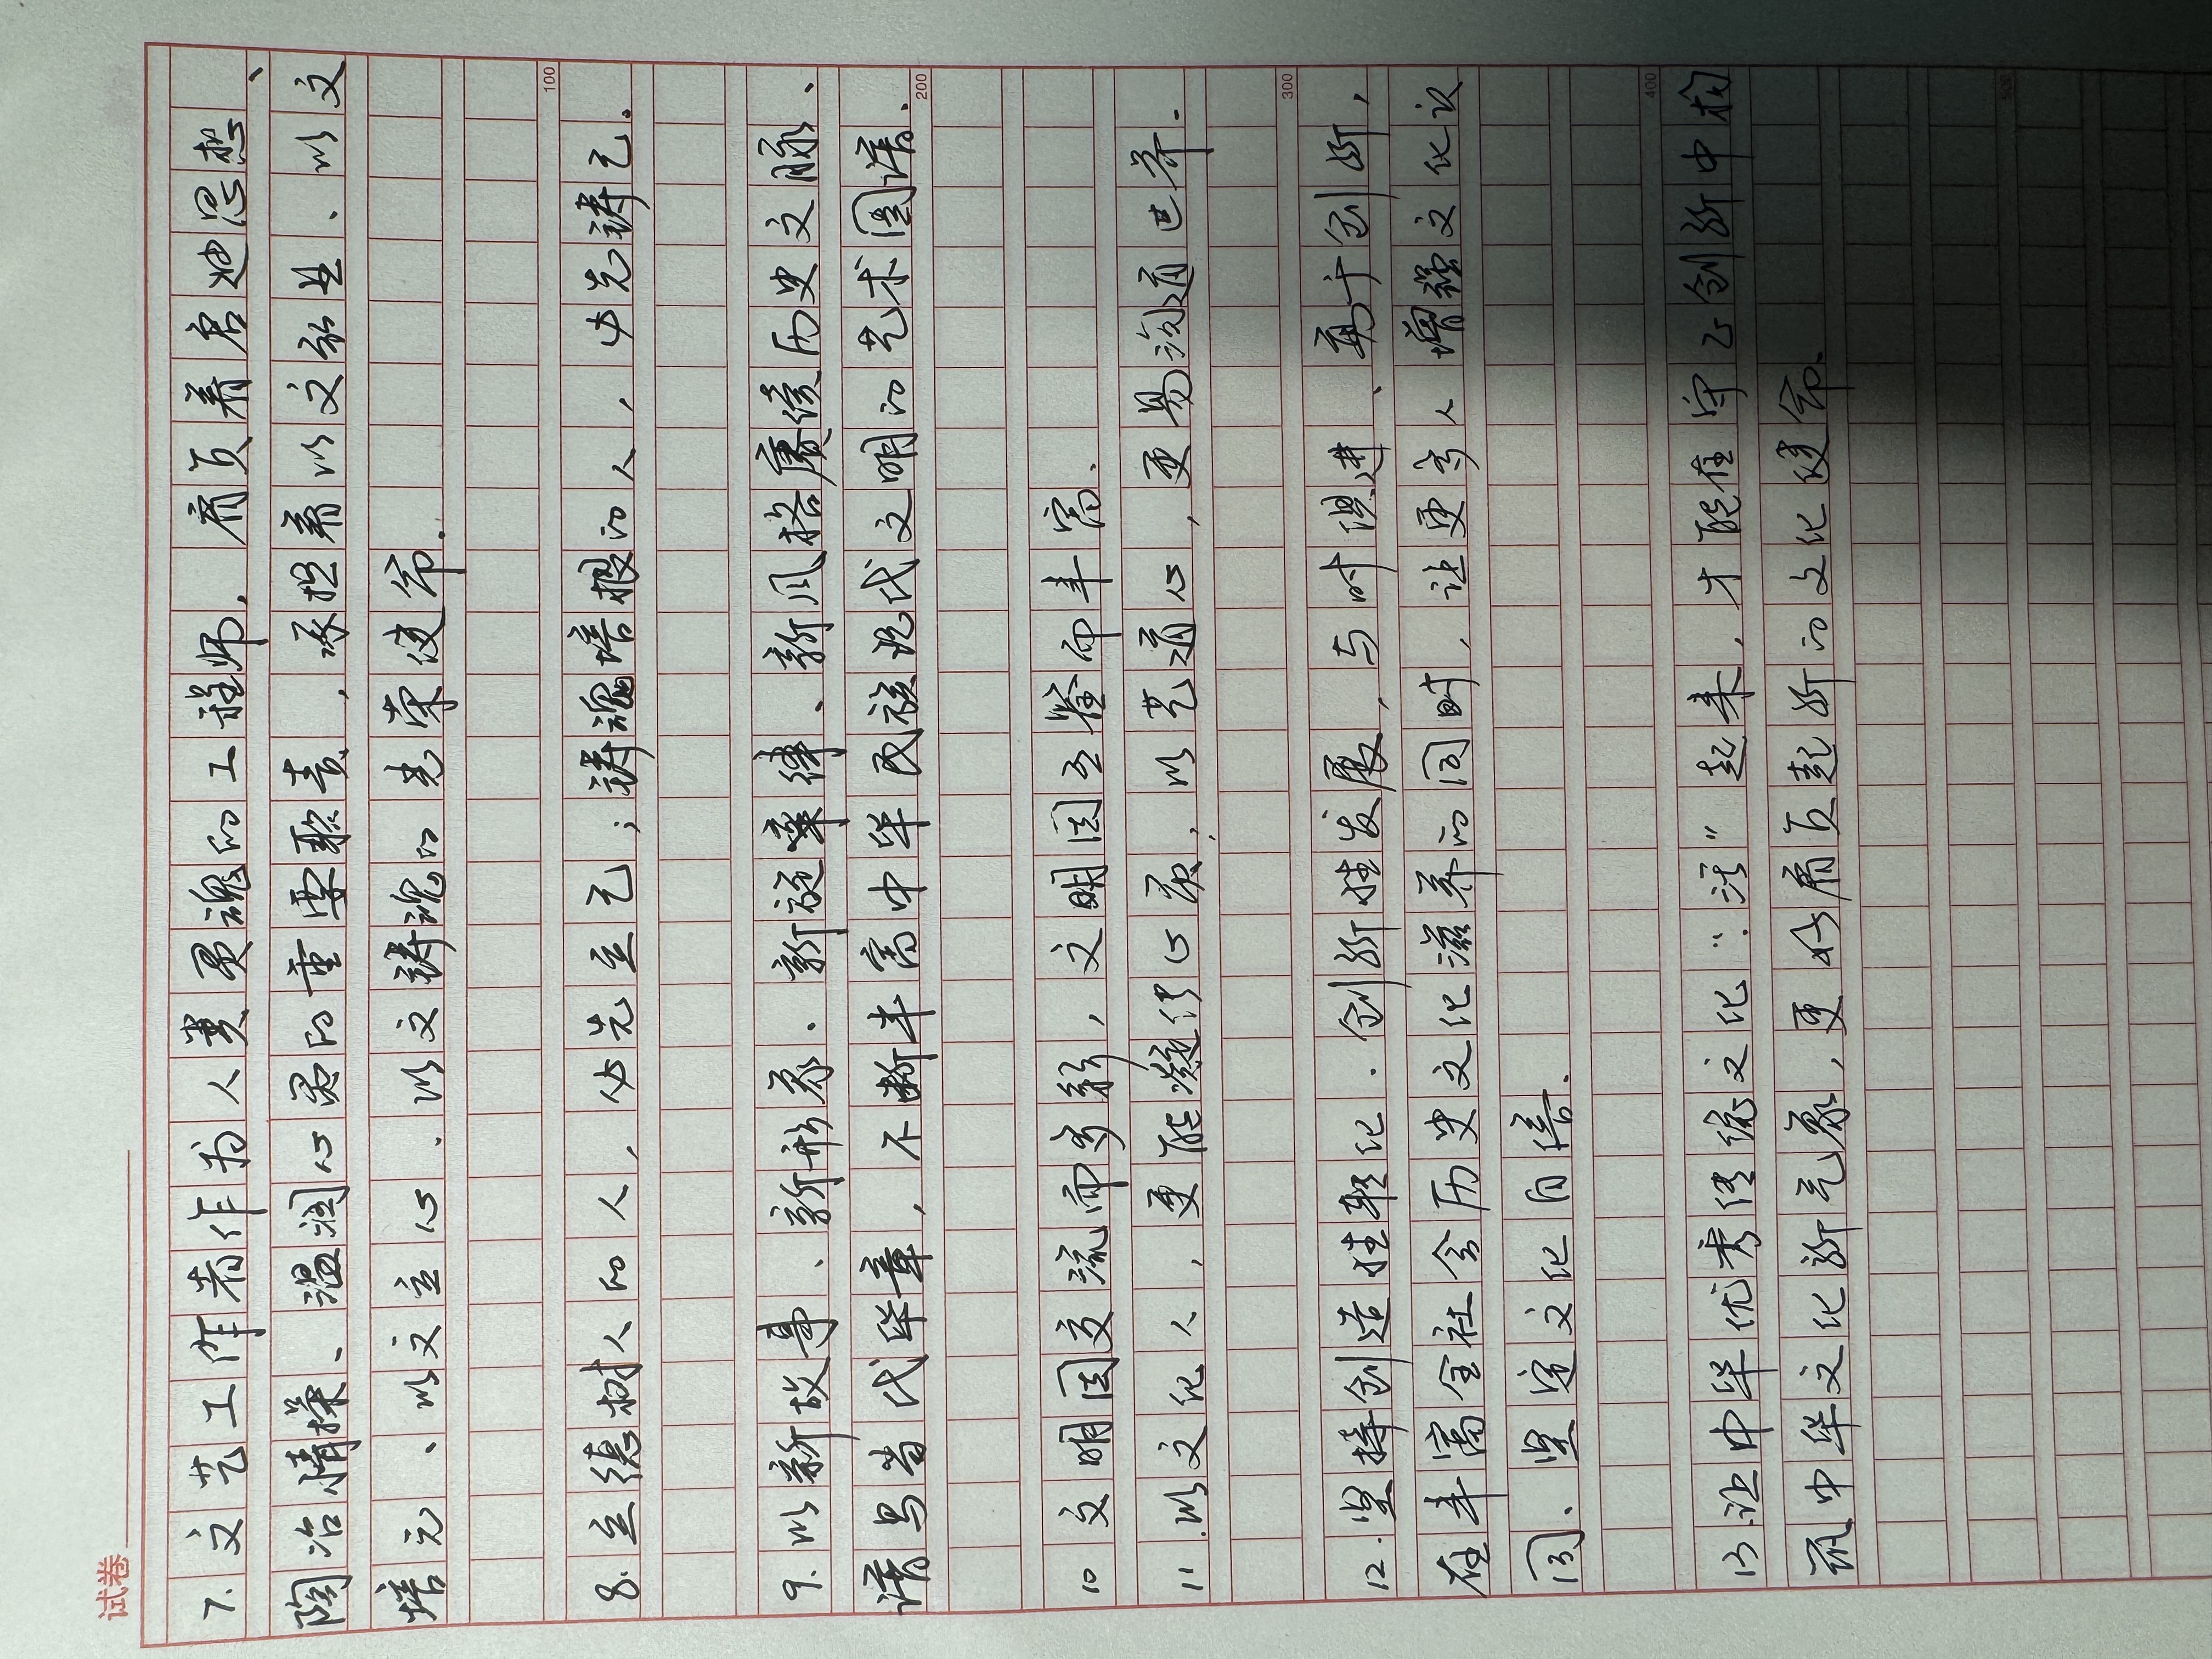 试卷
7.文艺工作者作为人类灵魂的工程师,肩负着启迪思想、
陶冶情操、温润心灵的重要职责,承担着以文弘业、以文
培元、以文立心、以文铸魂的光荣使命.
100
8.立德树人的人,必先立己;铸魂培根的人,必先铸己。
9.以新故事、新形象.新旋律、新风格赓续历史文脉、
谱写当代华章,不断丰富中华民族现代文明的艺术图谱.
200
10 文明因交流而多彩,文明因互鉴而丰富.
11.以文化人,更能凝结心灵,以艺通心,更易沟通世界.
300
12.坚持创造性转化.创新性发展,与时俱进、勇于创新,
在丰富全社会历史文化滋养的同时,让更多人增强文化认
同、坚定文化自信.
400
13.让中华优秀传统文化“活”起来,才能在守正创新中构
筑中华文化新气象,更好肩负起新的文化使命.
500